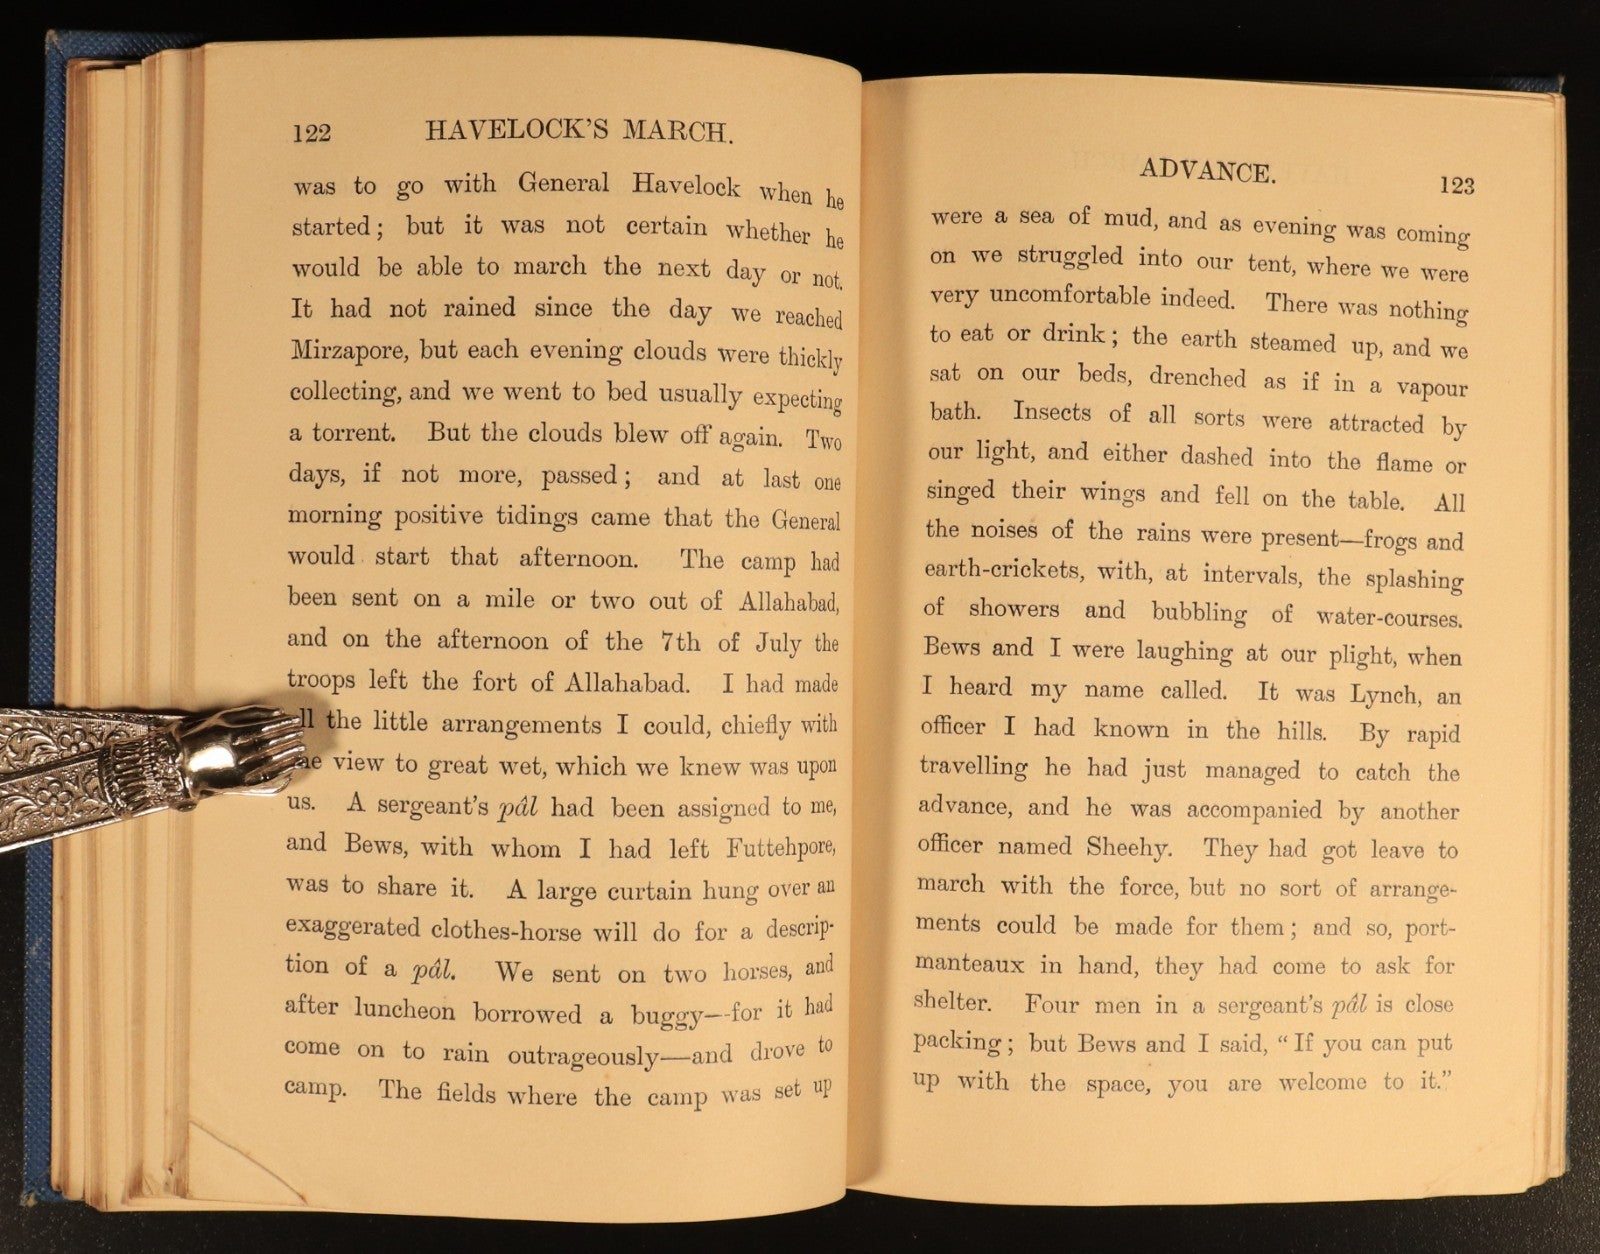 122 HAVELOCK'S MARCH.
was to go with General Havelock when he
started; but it was not certain whether he
would be able to march the next day or not.
It had not rained since the day we reached
Mirzapore, but each evening clouds were thickly
collecting, and we went to bed usually expecting
a torrent. But the clouds blew off again. Two
days, if not more, passed; and at last one
morning positive tidings came that the General
would start that afternoon. The camp had
been sent on a mile or two out of Allahabad,
and on the afternoon of the 7th of July the
troops left the fort of Allahabad. I had made
all the little arrangements I could, chiefly with
the view to great wet, which we knew was upon
us. A sergeant's pâl had been assigned to me,
and Bews, with whom I had left Futtehpore,
was to share it. A large curtain hung over an
exaggerated clothes-horse will do for a descrip-
tion of a pâl. We sent on two horses, and
after luncheon borrowed a buggy—for it had
come on to rain outrageously—and drove to
camp. The fields where the camp was set up
ADVANCE. 123
were a sea of mud, and as evening was coming
on we struggled into our tent, where we were
very uncomfortable indeed. There was nothing
to eat or drink; the earth steamed up, and we
sat on our beds, drenched as if in a vapour
bath. Insects of all sorts were attracted by
our light, and either dashed into the flame or
singed their wings and fell on the table. All
the noises of the rains were present—frogs and
earth-crickets, with, at intervals, the splashing
of showers and bubbling of water-courses.
Bews and I were laughing at our plight, when
I heard my name called. It was Lynch, an
officer I had known in the hills. By rapid
travelling he had just managed to catch the
advance, and he was accompanied by another
officer named Sheehy. They had got leave to
march with the force, but no sort of arrange-
ments could be made for them; and so, port-
manteaux in hand, they had come to ask for
shelter. Four men in a sergeant's pâl is close
packing; but Bews and I said, "If you can put
up with the space, you are welcome to it."